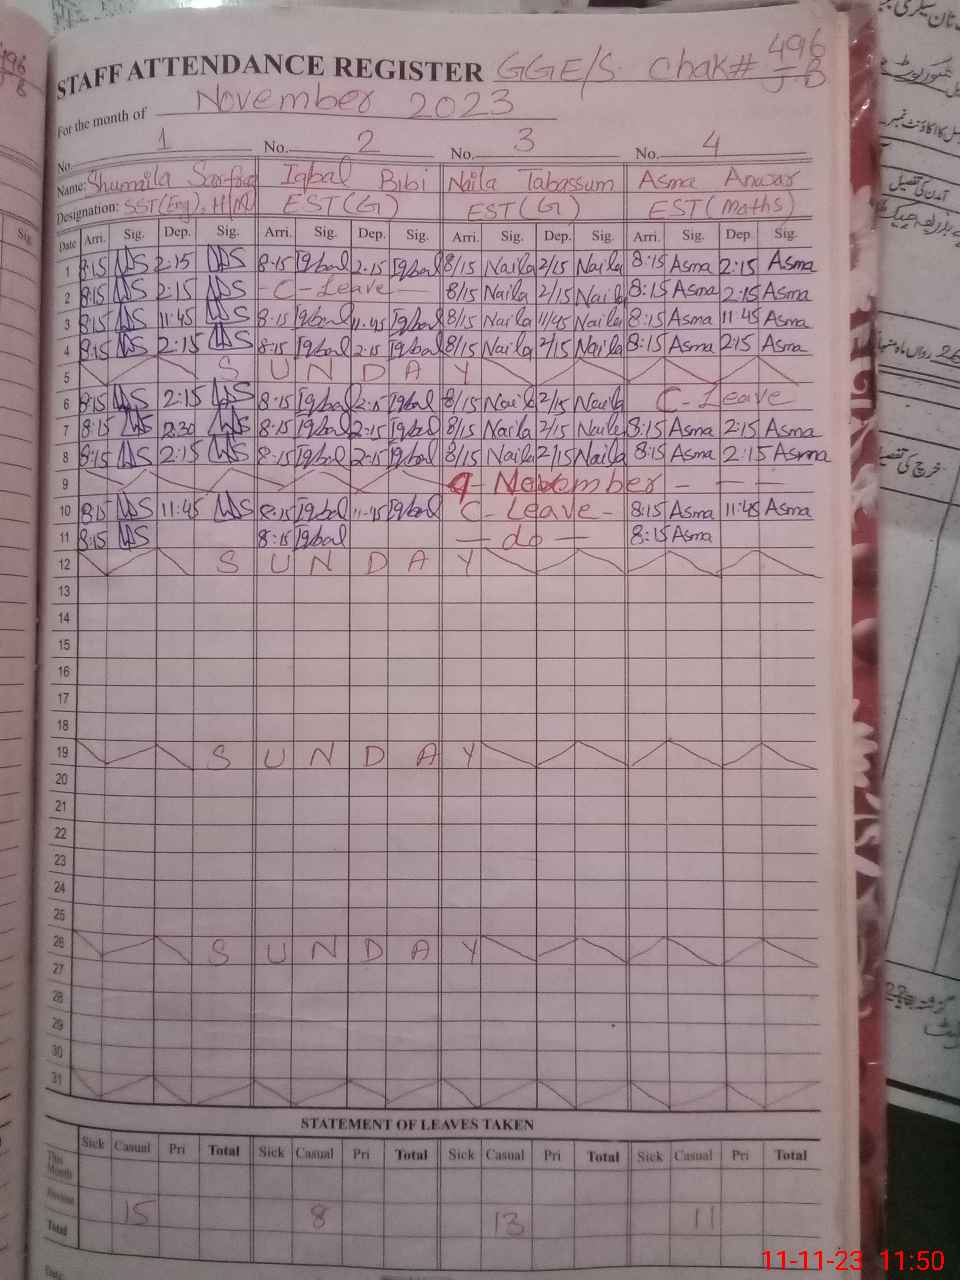 STAFF ATTENDANCE REGISTER GGE/S Chak# 496 J-B
For the month of November 2023
No. 1 No. 2 No. 3 No. 4
Name: Shumaila Sarfraz Iqbal Bibi Naila Tabassum Asma Anwar
Designation: SST(Eng), H/M EST(G) EST(G) EST(Maths)
Date Arri. Sig. Dep. Sig. Arri. Sig. Dep. Sig. Arri. Sig. Dep. Sig. Arri. Sig. Dep. Sig.
1 8:15 2:15 8:15 Iqbal 2:15 Iqbal 8/15 Naila 2/15 Naila 8:15 Asma 2:15 Asma
2 8:15 2:15 - C - Leave - 8/15 Naila 2/15 Naila 8:15 Asma 2:15 Asma
3 8:15 11:45 8:15 Iqbal 11:45 Iqbal 8/15 Naila 11/45 Naila 8:15 Asma 11:45 Asma
4 8:15 2:15 8:15 Iqbal 2:15 Iqbal 8/15 Naila 2/15 Naila 8:15 Asma 2:15 Asma
5 S U N D A Y
6 8:15 2:15 8:15 Iqbal 2:15 Iqbal 8/15 Naila 2/15 Naila C - Leave
7 8:15 2:30 8:15 Iqbal 2:15 Iqbal 8/15 Naila 2/15 Naila 8:15 Asma 2:15 Asma
8 8:15 2:15 8:15 Iqbal 2:15 Iqbal 8/15 Naila 2/15 Naila 8:15 Asma 2:15 Asma
9 9 - November - - -
10 8:15 11:45 8:15 Iqbal 11:45 Iqbal C - Leave - 8:15 Asma 11:45 Asma
11 8:15 8:15 Iqbal - do - 8:15 Asma
12 S U N D A Y
13
14
15
16
17
18
19 S U N D A Y
20
21
22
23
24
25
26 S U N D A Y
27
28
29
30
31
STATEMENT OF LEAVES TAKEN
Sick Casual Pri Total Sick Casual Pri Total Sick Casual Pri Total Sick Casual Pri Total
This Month
15 8 13 11
Total
11-11-23 11:50